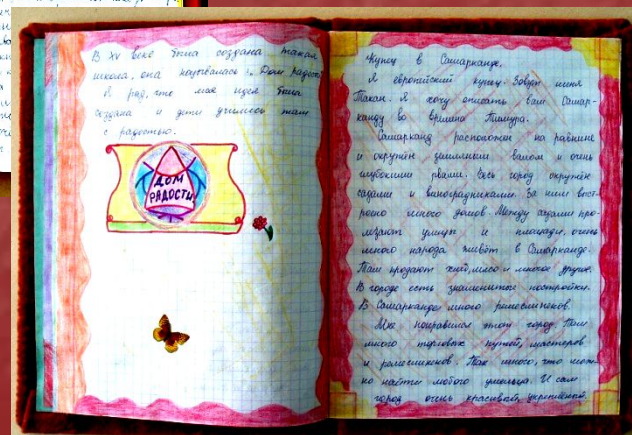 В XV веке была создана такая
школа, она называлась: „Дом радости
Я рад, что моя идея была
создана и дети учились там
с радостью.
ДОМ
РАДОСТИ
Купец в Самарканде.
Я европейский купец. Зовут меня
Такан. Я хочу описать вам Самар-
канду во времена Тимура.
Самарканд расположен на равнине
и окружён земляным валом и очень
глубокими рвами. Весь город окружён
садами и виноградниками. За ним выст-
роено много домов. Между садами про-
лезают улицы и площади, очень
много народа живёт в Самарканде.
Там продают хлеб, мясо и многое другое.
В городе есть знаменитые постройки.
В Самарканде много ремесленников.
Мне понравился этот город. Там
много торговых путей, мастеров
и ремеслиников. Так много, что мож-
но найти любого умельца. И сам
город очень красивый, укреплённый.